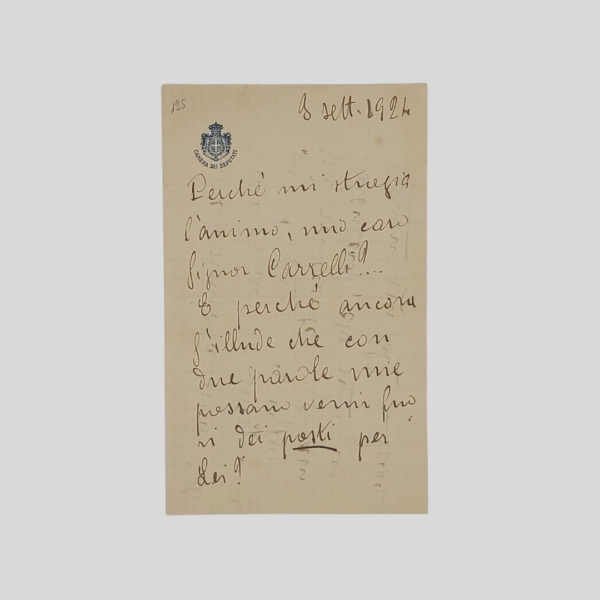 125
3 sett. 1924
CAMERA DEI DEPUTATI
Perché mi strazia
l'animo, mio caro
Signor Carrelli?...
E perché ancora
s'illude che con
due parole mie
possano venir fuo
ri dei posti per
Lei?